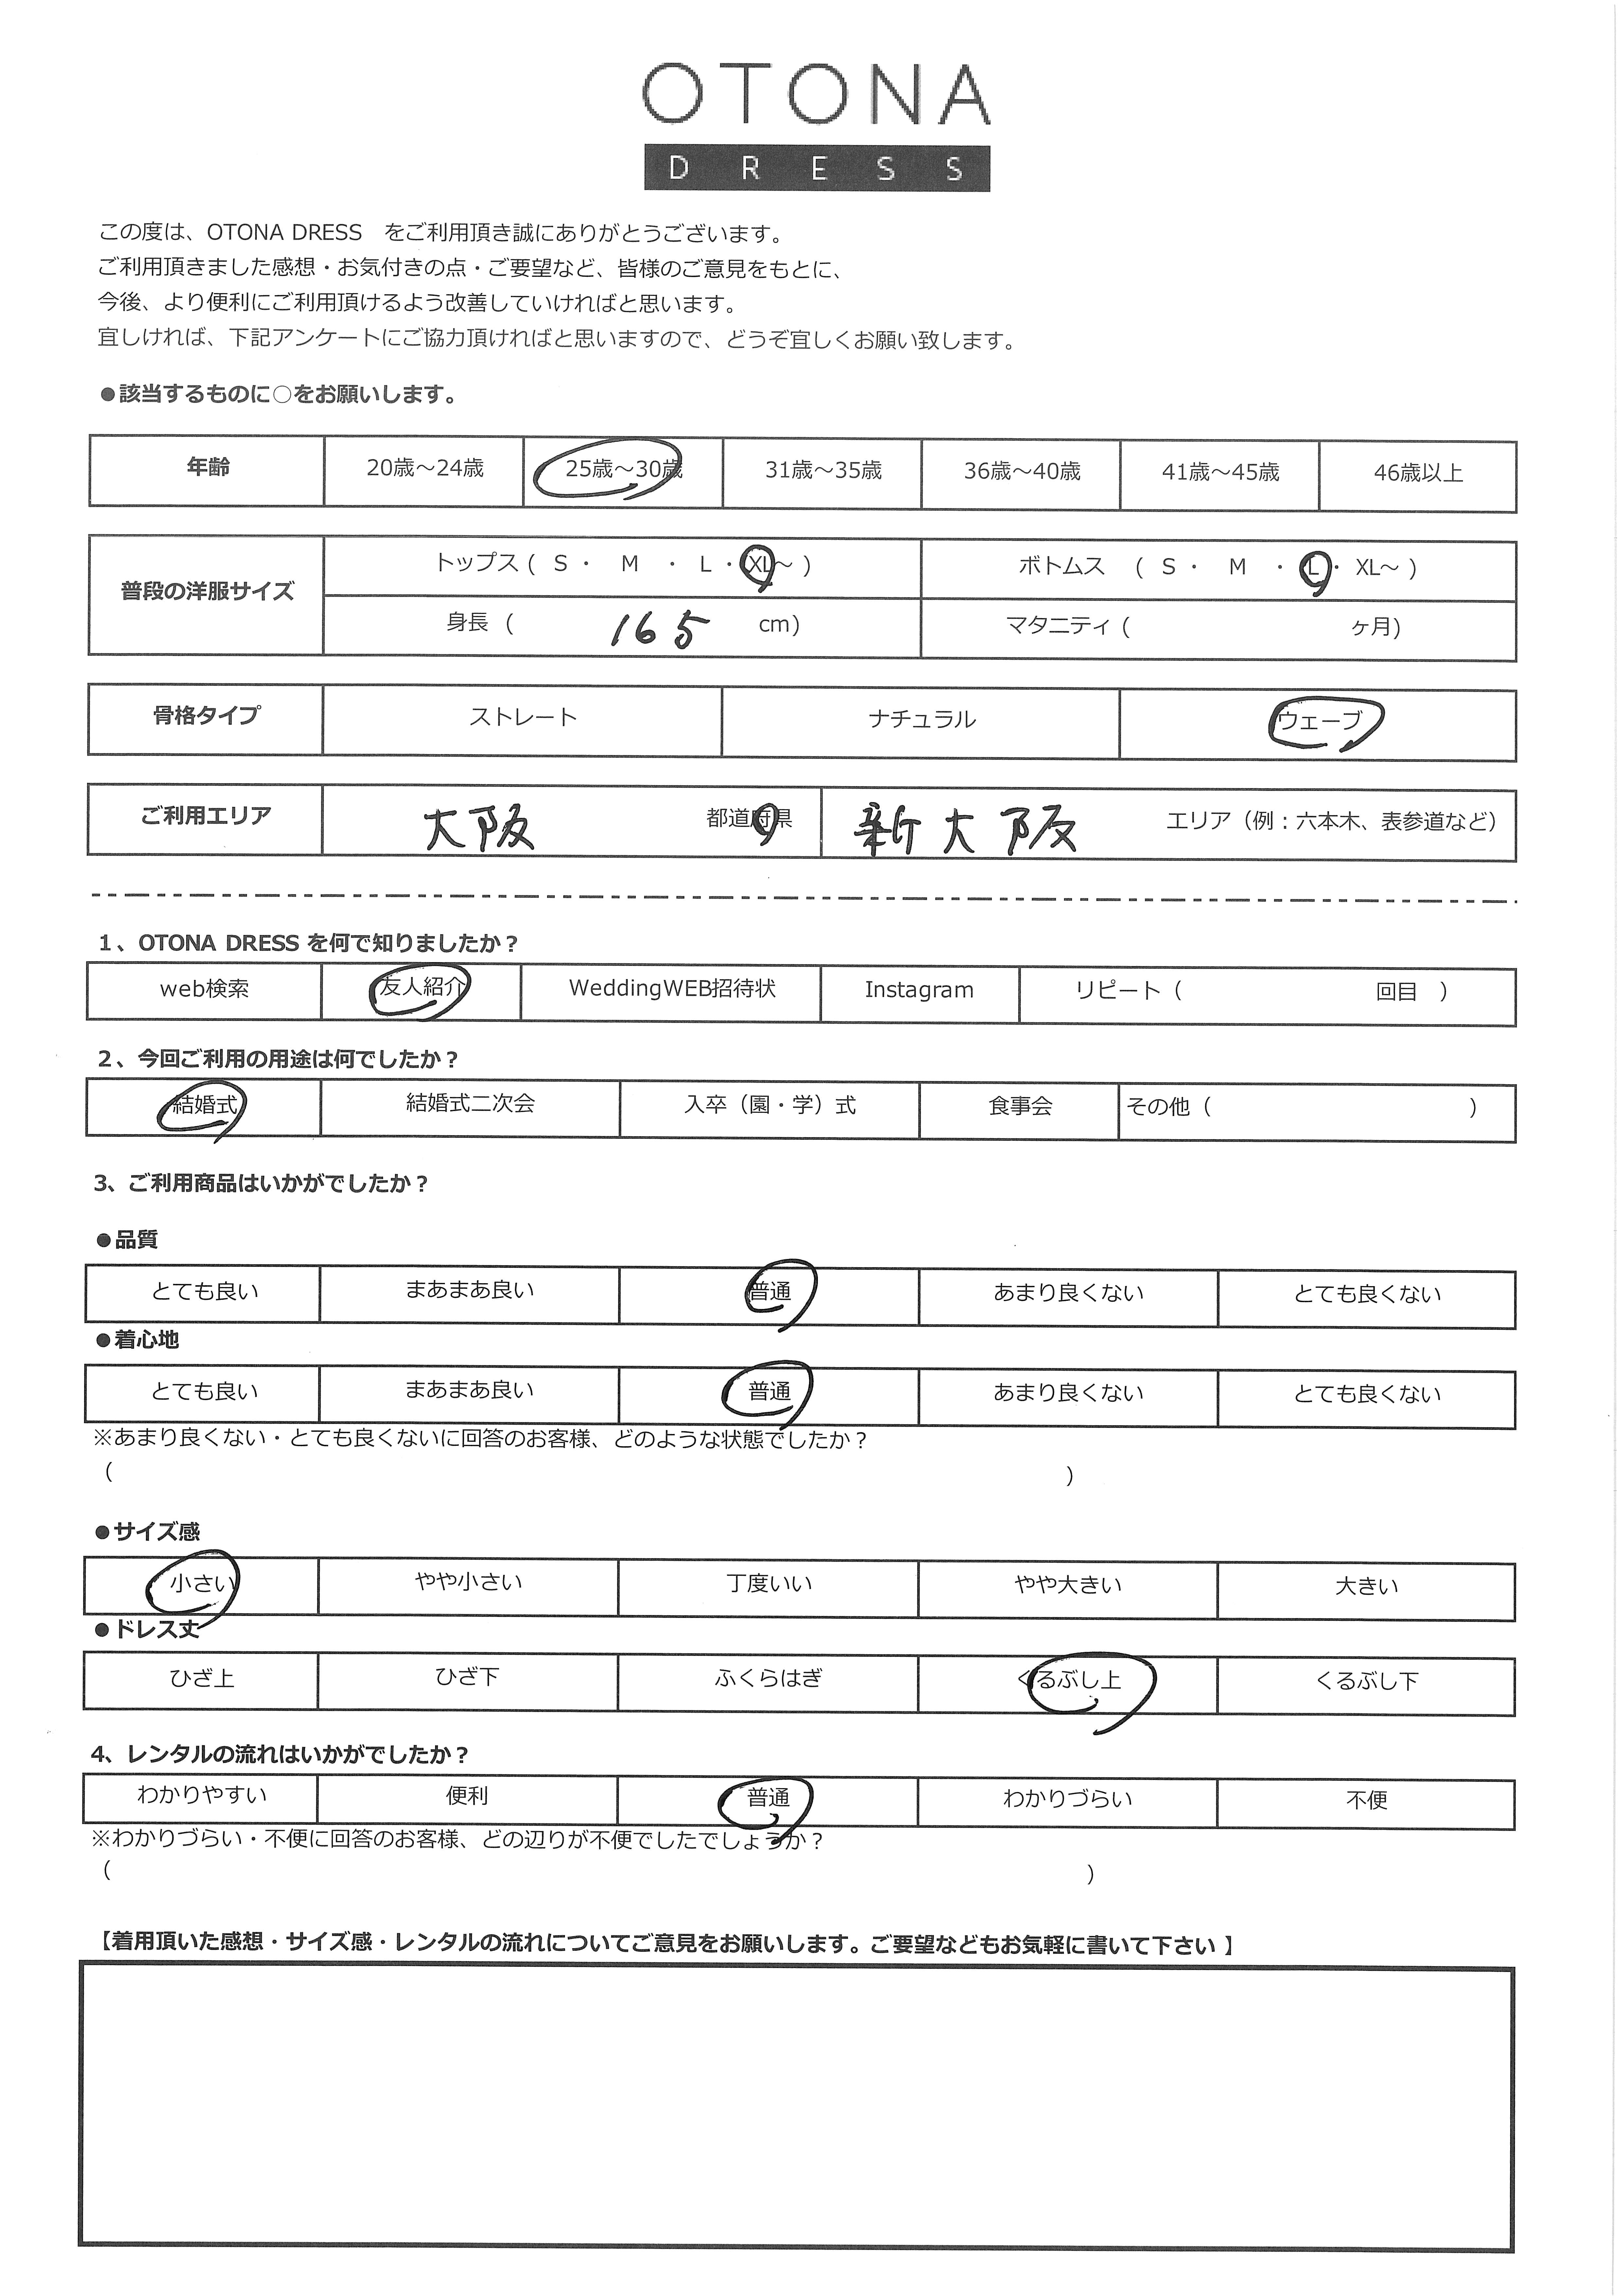 OTONA
DRESS
この度は、OTONA DRESS をご利用頂き誠にありがとうございます。
ご利用頂きました感想・お気付きの点・ご要望など、皆様のご意見をもとに、
今後、より便利にご利用頂けるよう改善していければと思います。
宜しければ、下記アンケートにご協力頂ければと思いますので、どうぞ宜しくお願い致します。
●該当するものに○をお願いします。
年齢 20歳～24歳 25歳～30歳 31歳～35歳 36歳～40歳 41歳～45歳 46歳以上
普段の洋服サイズ トップス ( S ・ M ・ L ・ XL～ ) ボトムス ( S ・ M ・ L ・ XL～ )
身長 ( 165 cm) マタニティ ( ヶ月)
骨格タイプ ストレート ナチュラル ウェーブ
ご利用エリア 大阪 都道府県 新大阪 エリア（例：六本木、表参道など）
1、OTONA DRESS を何で知りましたか？
web検索 友人紹介 WeddingWEB招待状 Instagram リピート（ 回目 ）
2、今回ご利用の用途は何でしたか？
結婚式 結婚式二次会 入卒（園・学）式 食事会 その他（ ）
3、ご利用商品はいかがでしたか？
●品質
とても良い まあまあ良い 普通 あまり良くない とても良くない
●着心地
とても良い まあまあ良い 普通 あまり良くない とても良くない
※あまり良くない・とても良くないに回答のお客様、どのような状態でしたか？
（ ）
●サイズ感
小さい やや小さい 丁度いい やや大きい 大きい
●ドレス丈
ひざ上 ひざ下 ふくらはぎ くるぶし上 くるぶし下
4、レンタルの流れはいかがでしたか？
わかりやすい 便利 普通 わかりづらい 不便
※わかりづらい・不便に回答のお客様、どの辺りが不便でしたでしょうか？
（ ）
【着用頂いた感想・サイズ感・レンタルの流れについてご意見をお願いします。ご要望などもお気軽に書いて下さい 】